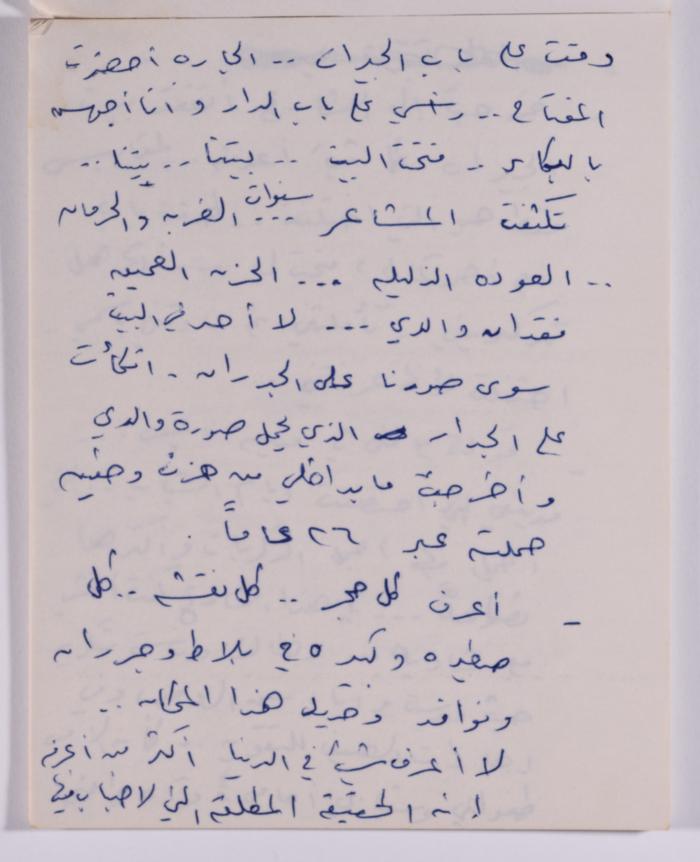 وقفت على باب الجيران .. الجاره أحضرت
المفتاح .. رأسي على باب الدار وأنا أجهش
بالبكاء .. فتحت البيت .. بيتنا .. بيتنا ..
تكثفت المشاعر سنوات الغربه والحرمان
.. العوده الذليله ... الحزن العميق
فقدان والدي ... لا أحد في البيت
سوى صورنا على الجدران . اتكأت
على الجدار الذي يحمل صورة والدي
وأخرجت ما بداخلي من حزن وحنين
حملته عبر ٢٦ عاماً .
_ أعرف كل حجر .. كل نقشه .. كل
صغيره وكبيره في بلاط وجدران
ونوافذ وقرميد هذا المكان ..
لا أعرف شيئاً في الدنيا أكثر من أعرفه
إنه الحقيقة المطلقة التي لا ضباب فيها